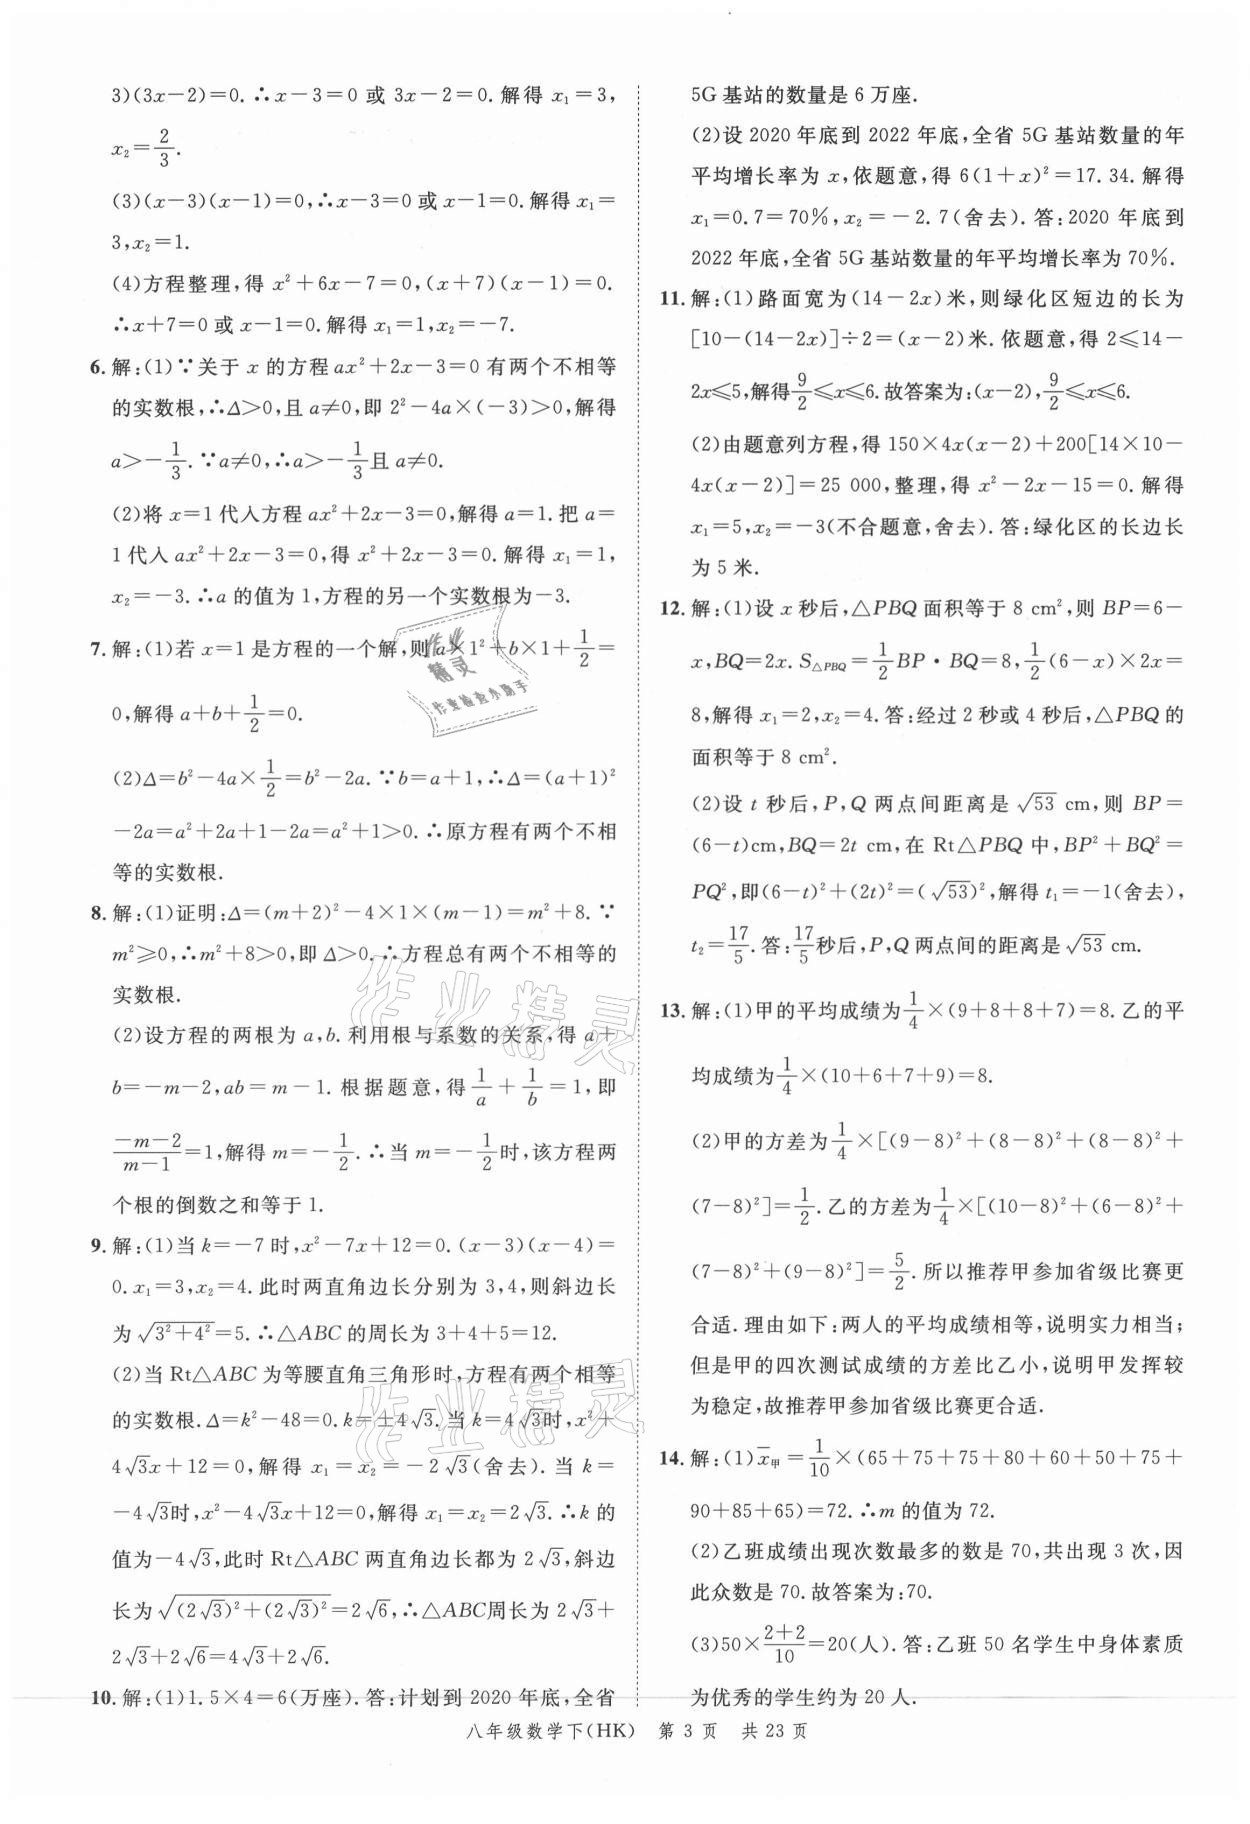 3)(3x－2)=0. ∴x－3=0 或 3x－2=0. 解得 x₁=3,
x₂=2/3.
(3)(x－3)(x－1)=0,∴x－3=0 或 x－1=0. 解得 x₁=
3,x₂=1.
(4)方程整理,得 x²+6x－7=0,(x+7)(x－1)=0.
∴x+7=0 或 x－1=0. 解得 x₁=1,x₂=－7.
6. 解:(1)∵关于 x 的方程 ax²+2x－3=0 有两个不相等
的实数根,∴Δ>0,且 a≠0,即 2²－4a×(－3)>0,解得
a>－1/3. ∵a≠0,∴a>－1/3且 a≠0.
(2)将 x=1 代入方程 ax²+2x－3=0,解得 a=1. 把 a=
1 代入 ax²+2x－3=0,得 x²+2x－3=0. 解得 x₁=1,
x₂=－3. ∴a 的值为 1,方程的另一个实数根为－3.
7. 解:(1)若 x=1 是方程的一个解,则 a×1²+b×1+1/2=
0,解得 a+b+1/2=0.
(2)Δ=b²－4a×1/2=b²－2a. ∵b=a+1,∴Δ=(a+1)²
－2a=a²+2a+1－2a=a²+1>0. ∴原方程有两个不相
等的实数根.
8. 解:(1)证明:Δ=(m+2)²－4×1×(m－1)=m²+8. ∵
m²≥0,∴m²+8>0,即 Δ>0. ∴方程总有两个不相等的
实数根.
(2)设方程的两根为 a,b. 利用根与系数的关系,得 a+
b=－m－2,ab=m－1. 根据题意,得1/a+1/b=1,即
(－m－2)/(m－1)=1,解得 m=－1/2. ∴当 m=－1/2时,该方程两
个根的倒数之和等于 1.
9. 解:(1)当 k=－7 时,x²－7x+12=0. (x－3)(x－4)=
0. x₁=3,x₂=4. 此时两直角边长分别为 3,4,则斜边长
为 √(3²+4²)=5. ∴△ABC 的周长为 3+4+5=12.
(2)当 Rt△ABC 为等腰直角三角形时,方程有两个相等
的实数根. Δ=k²－48=0. k=±4√3. 当 k=4√3时,x²+
4√3x+12=0,解得 x₁=x₂=－2√3(舍去). 当 k=
－4√3时,x²－4√3x+12=0,解得 x₁=x₂=2√3. ∴k 的
值为－4√3,此时 Rt△ABC 两直角边长都为 2√3,斜边
长为√((2√3)²+(2√3)²)=2√6,∴△ABC周长为 2√3+
2√3+2√6=4√3+2√6.
10. 解:(1)1. 5×4=6(万座). 答:计划到 2020 年底,全省
5G 基站的数量是 6 万座.
(2)设 2020 年底到 2022 年底,全省 5G 基站数量的年
平均增长率为 x,依题意,得 6(1+x)²=17. 34. 解得
x₁=0. 7=70%,x₂=－2. 7(舍去). 答:2020 年底到
2022 年底,全省 5G 基站数量的年平均增长率为 70%.
11. 解:(1)路面宽为(14－2x)米,则绿化区短边的长为
[10－(14－2x)]÷2=(x－2)米. 依题意,得 2≤14－
2x≤5,解得9/2≤x≤6. 故答案为:(x－2),9/2≤x≤6.
(2)由题意列方程,得 150×4x(x－2)+200[14×10－
4x(x－2)]=25 000,整理,得 x²－2x－15=0. 解得
x₁=5,x₂=－3(不合题意,舍去). 答:绿化区的长边长
为 5 米.
12. 解:(1)设 x 秒后,△PBQ 面积等于 8 cm²,则 BP=6－
x,BQ=2x. S△PBQ=1/2BP·BQ=8,1/2(6－x)×2x=
8,解得 x₁=2,x₂=4. 答:经过 2 秒或 4 秒后,△PBQ 的
面积等于 8 cm².
(2)设 t 秒后,P,Q 两点间距离是 √53 cm,则 BP=
(6－t)cm,BQ=2t cm,在 Rt△PBQ 中,BP²+BQ²=
PQ²,即(6－t)²+(2t)²=(√53)²,解得 t₁=－1(舍去),
t₂=17/5. 答:17/5秒后,P,Q 两点间的距离是 √53 cm.
13. 解:(1)甲的平均成绩为1/4×(9+8+8+7)=8. 乙的平
均成绩为1/4×(10+6+7+9)=8.
(2)甲的方差为1/4×[(9－8)²+(8－8)²+(8－8)²+
(7－8)²]=1/2. 乙的方差为1/4×[(10－8)²+(6－8)²+
(7－8)²+(9－8)²]=5/2. 所以推荐甲参加省级比赛更
合适. 理由如下:两人的平均成绩相等,说明实力相当;
但是甲的四次测试成绩的方差比乙小,说明甲发挥较
为稳定,故推荐甲参加省级比赛更合适.
14. 解:(1)x̄甲=1/10×(65+75+75+80+60+50+75+
90+85+65)=72. ∴m 的值为 72.
(2)乙班成绩出现次数最多的数是 70,共出现 3 次,因
此众数是 70. 故答案为:70.
(3)50×(2+2)/10=20(人). 答:乙班 50 名学生中身体素质
为优秀的学生约为 20 人.
八年级数学下(HK) 第 3 页 共 23 页
作业
精灵
作业检查小助手
作业精灵
作业精灵